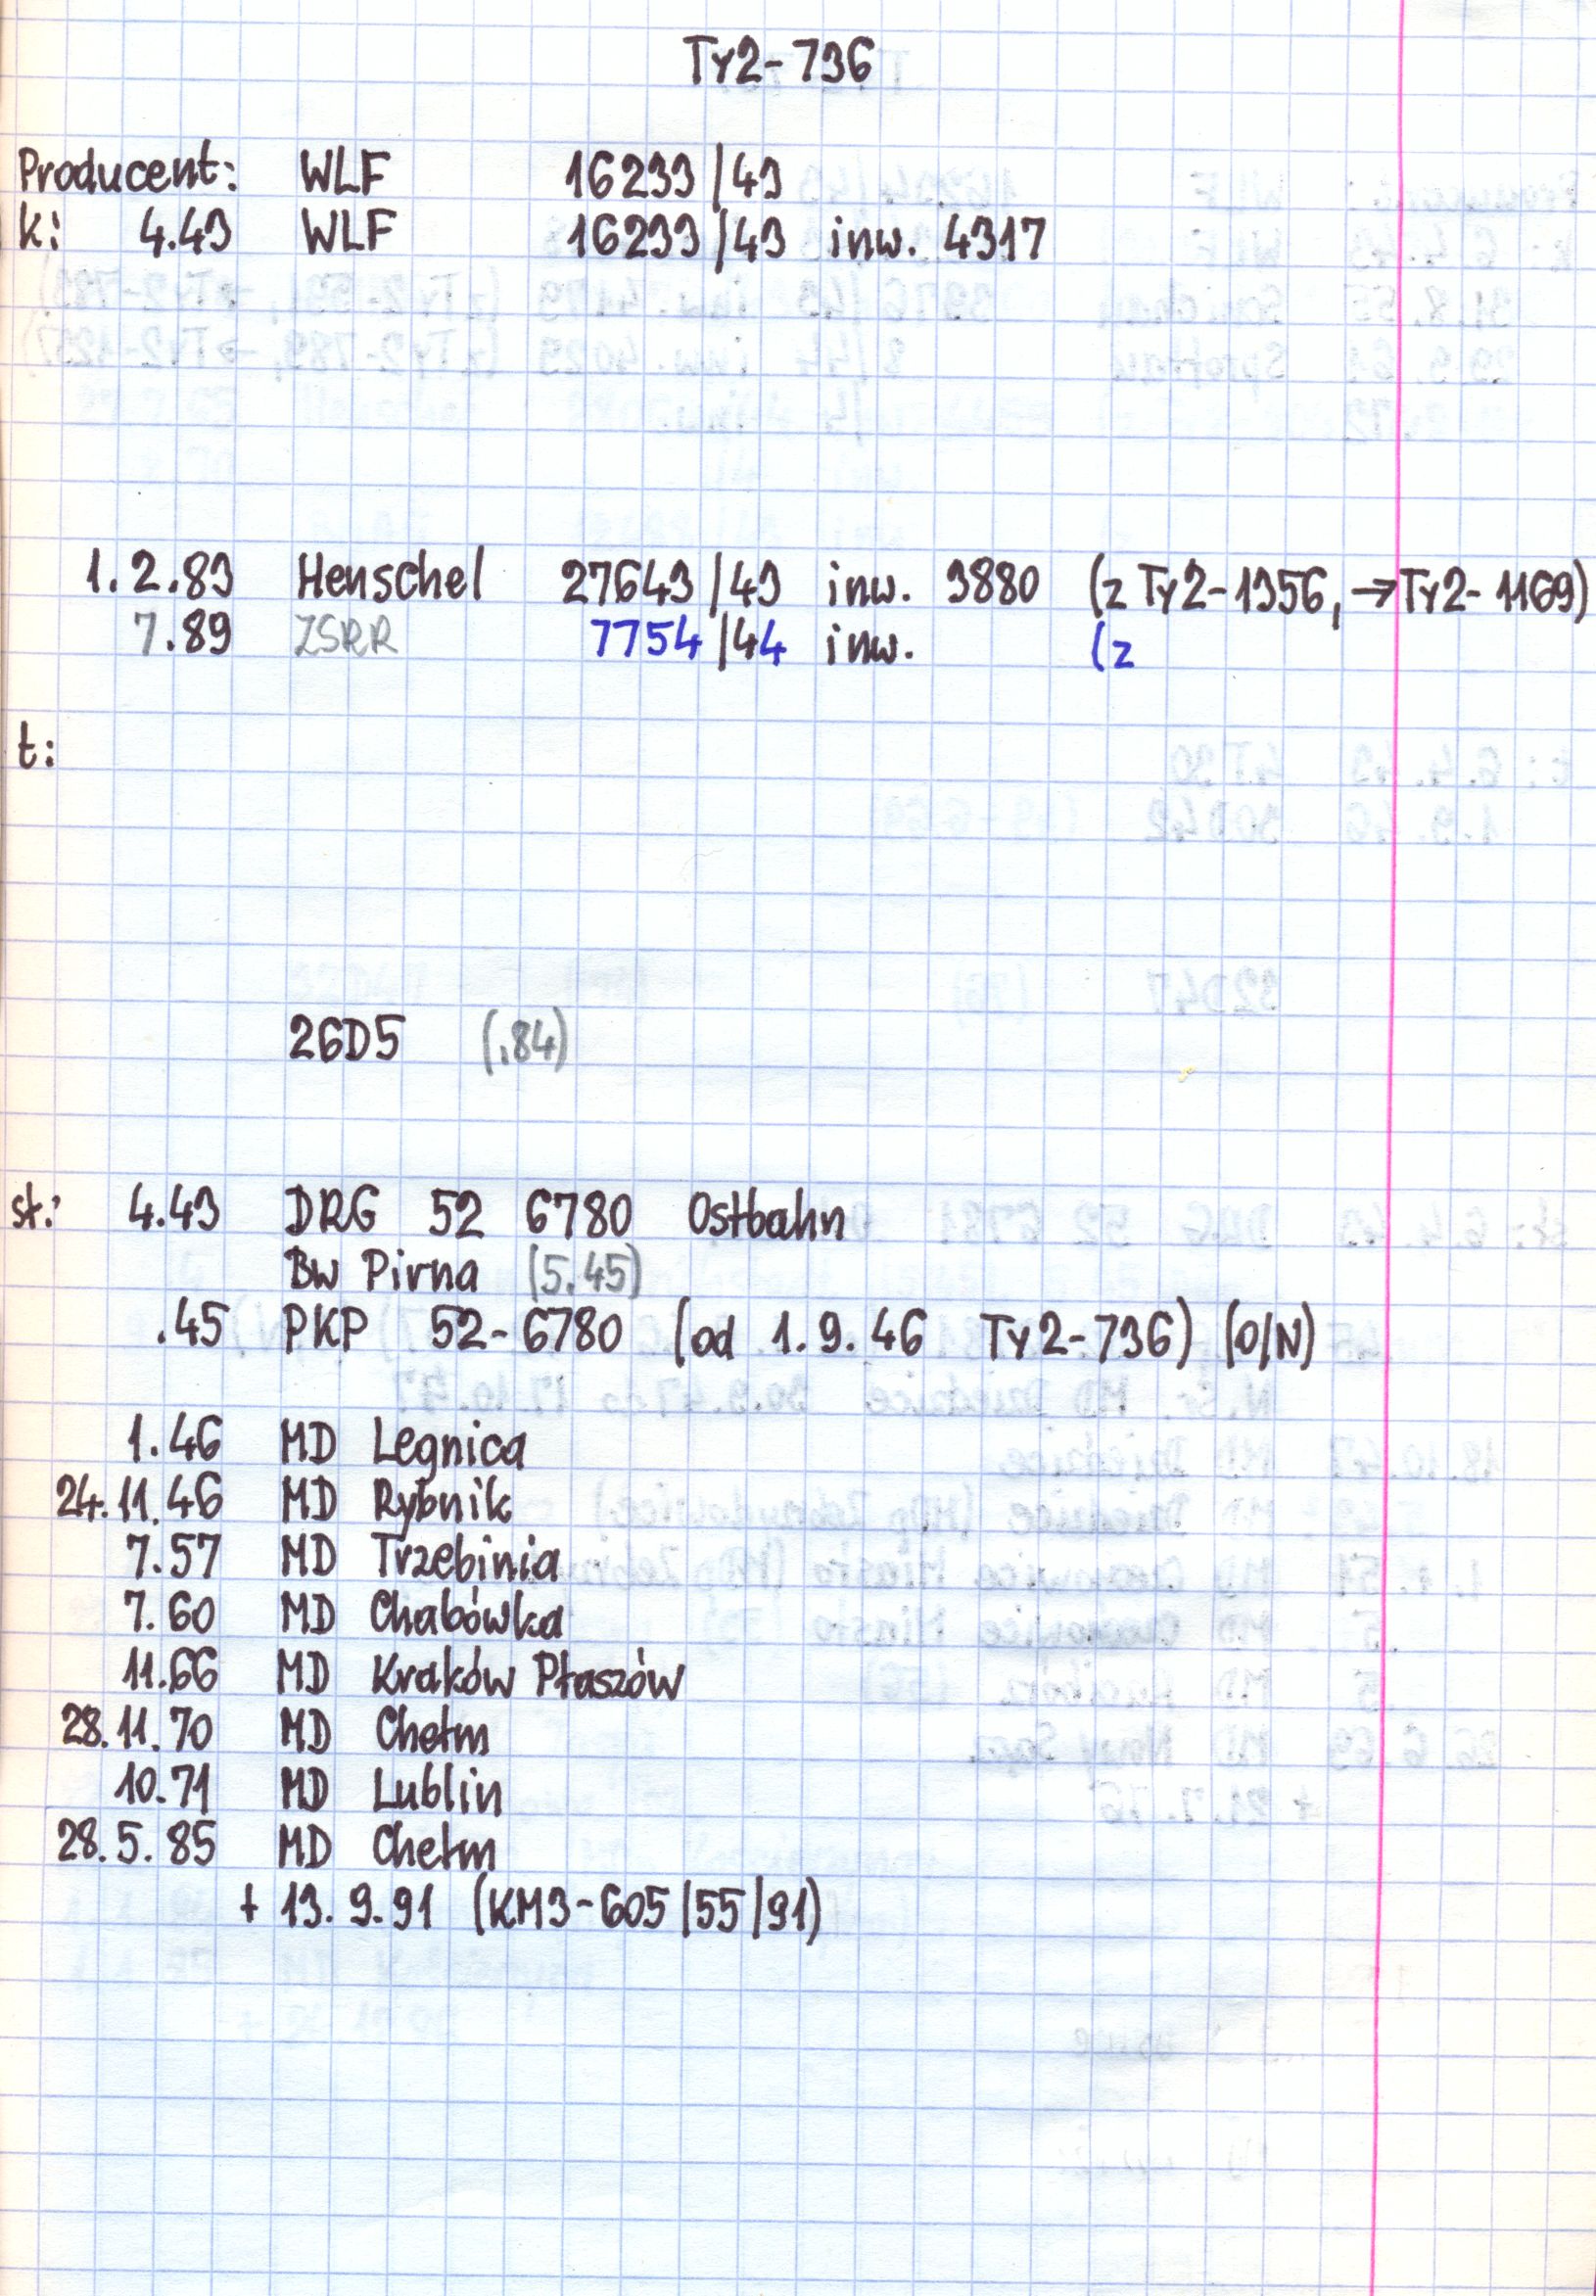 Ty2-736
Producent: WLF 16233/43
k: 4.43 WLF 16233/43 inw. 4317
1.2.83 Henschel 27643/43 inw. 3880 (z Ty2-1356, →Ty2-1169)
7.89 ZSRR 7754/44 inw. (z
t:
26D5 (.84)
st: 4.43 DRG 52 6780 Ostbahn
Bw Pirna (5.45)
.45 PKP 52-6780 (od 1.9.46 Ty2-736) (O/N)
1.46 MD Legnica
24.11.46 MD Rybnik
7.57 MD Trzebinia
7.60 MD Chabówka
11.66 MD Kraków Płaszów
28.11.70 MD Chełm
10.71 MD Lublin
28.5.85 MD Chełm
+ 13.9.91 (KM3-605/55/91)